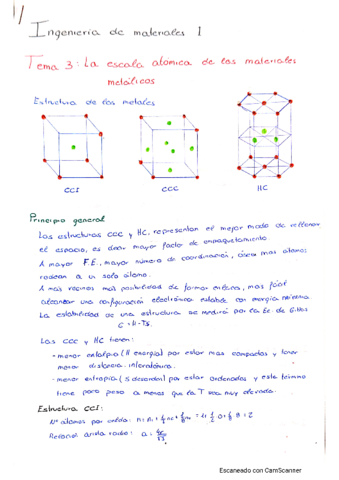 1/
Ingeniería de materiales 1
Tema 3: La escala atómica de los materiales
metálicos
Estructura de los metales
CCI
CCC
HC
Principio general
Las estructuras CCC y HC, representan el mejor modo de rellenar
el espacio, es decir mayor factor de empaquetamiento.
A mayor F.E., mayor número de coordinación, átomos
rodean a un solo átomo.
A más vecinos más posibilidad de formar enlaces, más fácil
alcanzar una configuración electrónica estable con energía mínima.
La estabilidad de una estructura se medirá por la Ec de Gibbs
G = H-TS.
Las CCC y HC tienen:
- menor entalpía (H energía) por estar más compactas y tener
menor distancia interatómica.
- menor entropía (S desorden) por estar ordenados y este término
tiene poco peso a menos que la T sea muy elevada.
Estructura CCI:
Nº átomos por celda: n =
Relación arista radio: a = 4r/√3